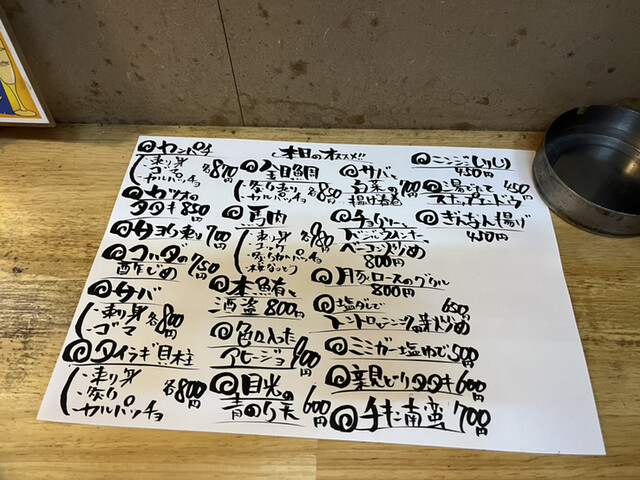 本日のオススメ!!
カンパチ
刺し身
ゴマ
カルパッチョ
各870円
カツオの
タタキ 850円
サヨリ刺し 700円
コハダの
酢じめ 750円
サバ
刺し身
ゴマ
各800円
タイラギ貝柱
刺し身
炙り
カルパッチョ
各800円
金目鯛
炙り刺し
各850円
馬肉
刺し身
各980円
本鮪と
酒盗 800円
色々入った
アヒージョ 900円
目光の
青のり天 600円
サバと
白菜の 700円
揚げ春巻
チョリソー、
ベーコン炒め
800円
豚ロースのグリル
800円
塩だしで 650円
ミミガー塩ゆで 500円
親どりタタキ 600円
チキン南蛮 700円
ニンジンしりしり
450円
湯でたて 450円
スナップエンドウ
ぎんなん揚げ
450円